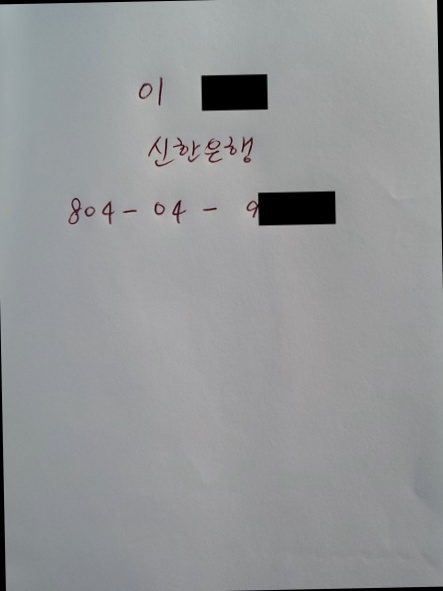 이
신한은행
804-04-9